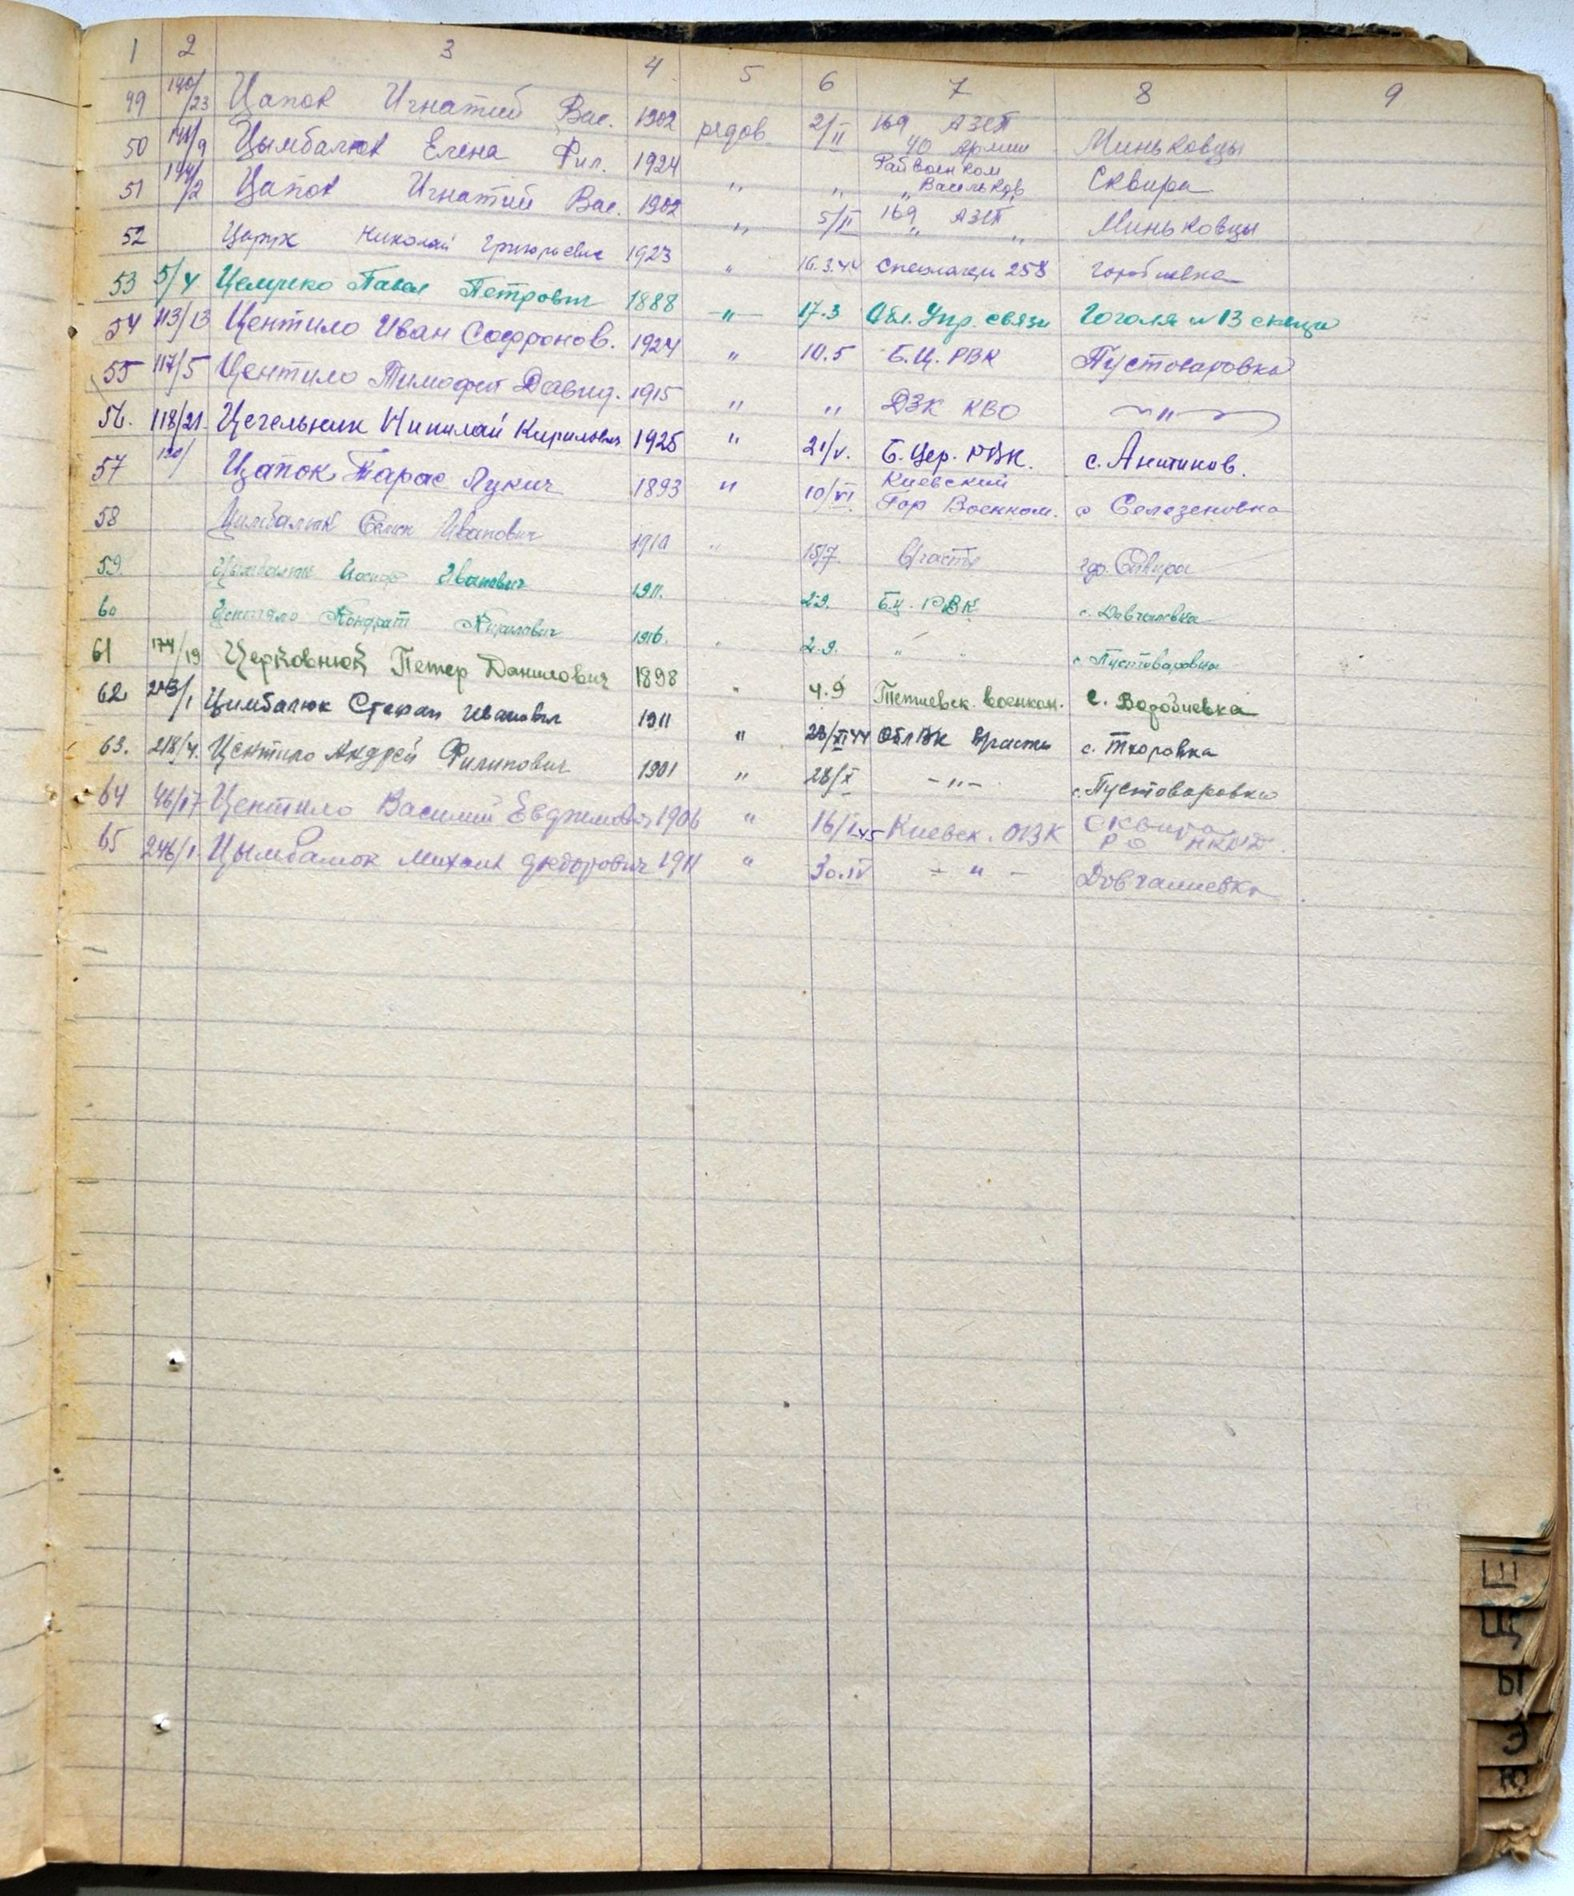 1 2 3 4 5 6 7 8 9
49 190/23 Цапок Игнатий Вас. 1902 рядов. 2/II 169 АЗСП 40 Армии Миньковцы
50 191/9 Цымбалюк Елена Фил. 1924 " " Райвоенком Васильков Сквира
51 194/2 Цапок Игнатий Вас. 1902 " 5/II 169 " АЗСП " Миньковцы
52 Царук Николай Григорьевич 1923 " 16.3.44 258
53 5/4 Павел Петрович 1888 -"- 17.3 Обл. Упр. связи Гоголя №13
54 113/13 Центило Иван Софронов. 1924 " 10.5 Б.Ц. РВК Пустоваровка
55 117/5 Центило Тимофей Давид. 1915 " " ДЗК КВО -"-
56. 118/21. Цегельник Николай Кирилович 1925 " 21/V. Б. Цер. РВК. с. Антонов.
57 Цапок Тарас Лукич 1893 " 10/VI. Киевский Гор Военком. с Селезеновка
58 Цимбалюк Иванович " 15/7. В/части гор. Сквира
59. Цымбалюк Иосиф Иванович 1911. 2.9. Б.Ц. РВК с. Довгалевка
60 Центило Кондрат Кирилович 1916. " 2.9. " " с Пустоваровка
61 174/19 Церковнюк Петер Данилович 1898 " 4.9 Тетиевск. военком. с. Воробиевка
62. 203/1 Цимбалюк Стефан Иванович 1911 " 23/XI 44 ОблВК в/части с. Тхоровка
63. 218/4. Центило Андрей Филипович 1901 " 28/X -"- с. Пустоваровка
64 46/17 Центило Василий 1906 " 16/I 45 Киевск. ОВК Сквира РО НКВД.
65 246/1. Цымбалюк Михаил Федорович 1911 " 30.IV - " - Довгалиевка
Ш
Щ
Ы
Э
Ю